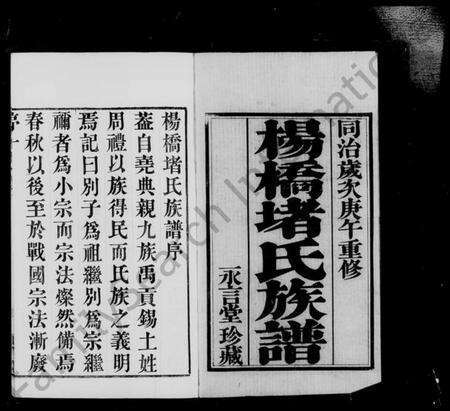 同治歲次庚午重修
楊橋堵氏族譜
永言堂珍藏
楊橋堵氏族譜序
葢自堯典親九族禹貢錫土姓
周禮以族得民而氏族之義明
焉記曰別子爲祖繼別爲宗繼
禰者爲小宗而宗法燦然備焉
春秋以後至於戰國宗法漸廢
FamilySearch International